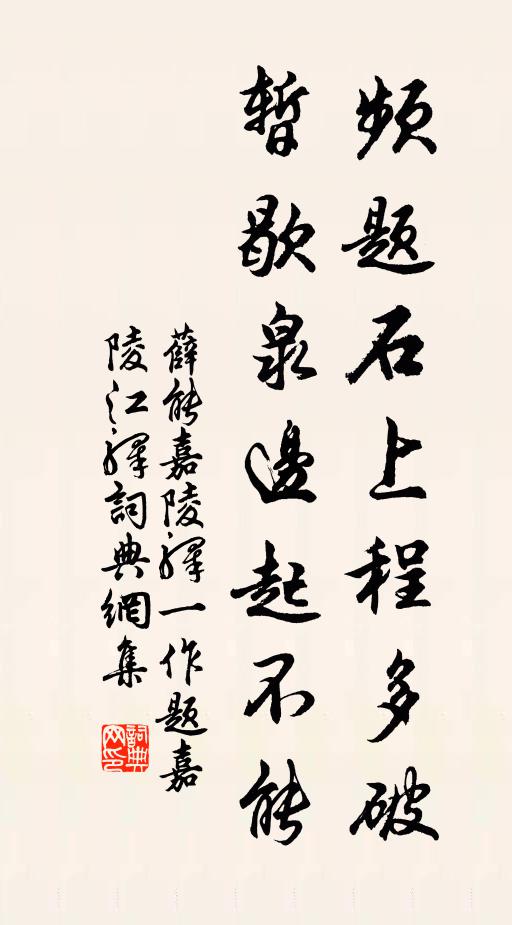 频题石上程多破
暂歇泉边起不能
薛能嘉陵驿一作题嘉
陵江驿词典網集
詞典网印